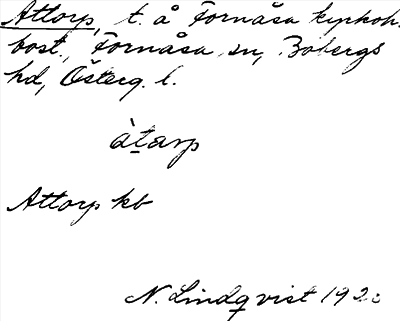 Attorp, t. å Fornåsa kyrkoh.
bost., Fornåsa sn, Bobergs
hd, Österg. l.
àtarp
Attorp kb
N. Lindqvist 192